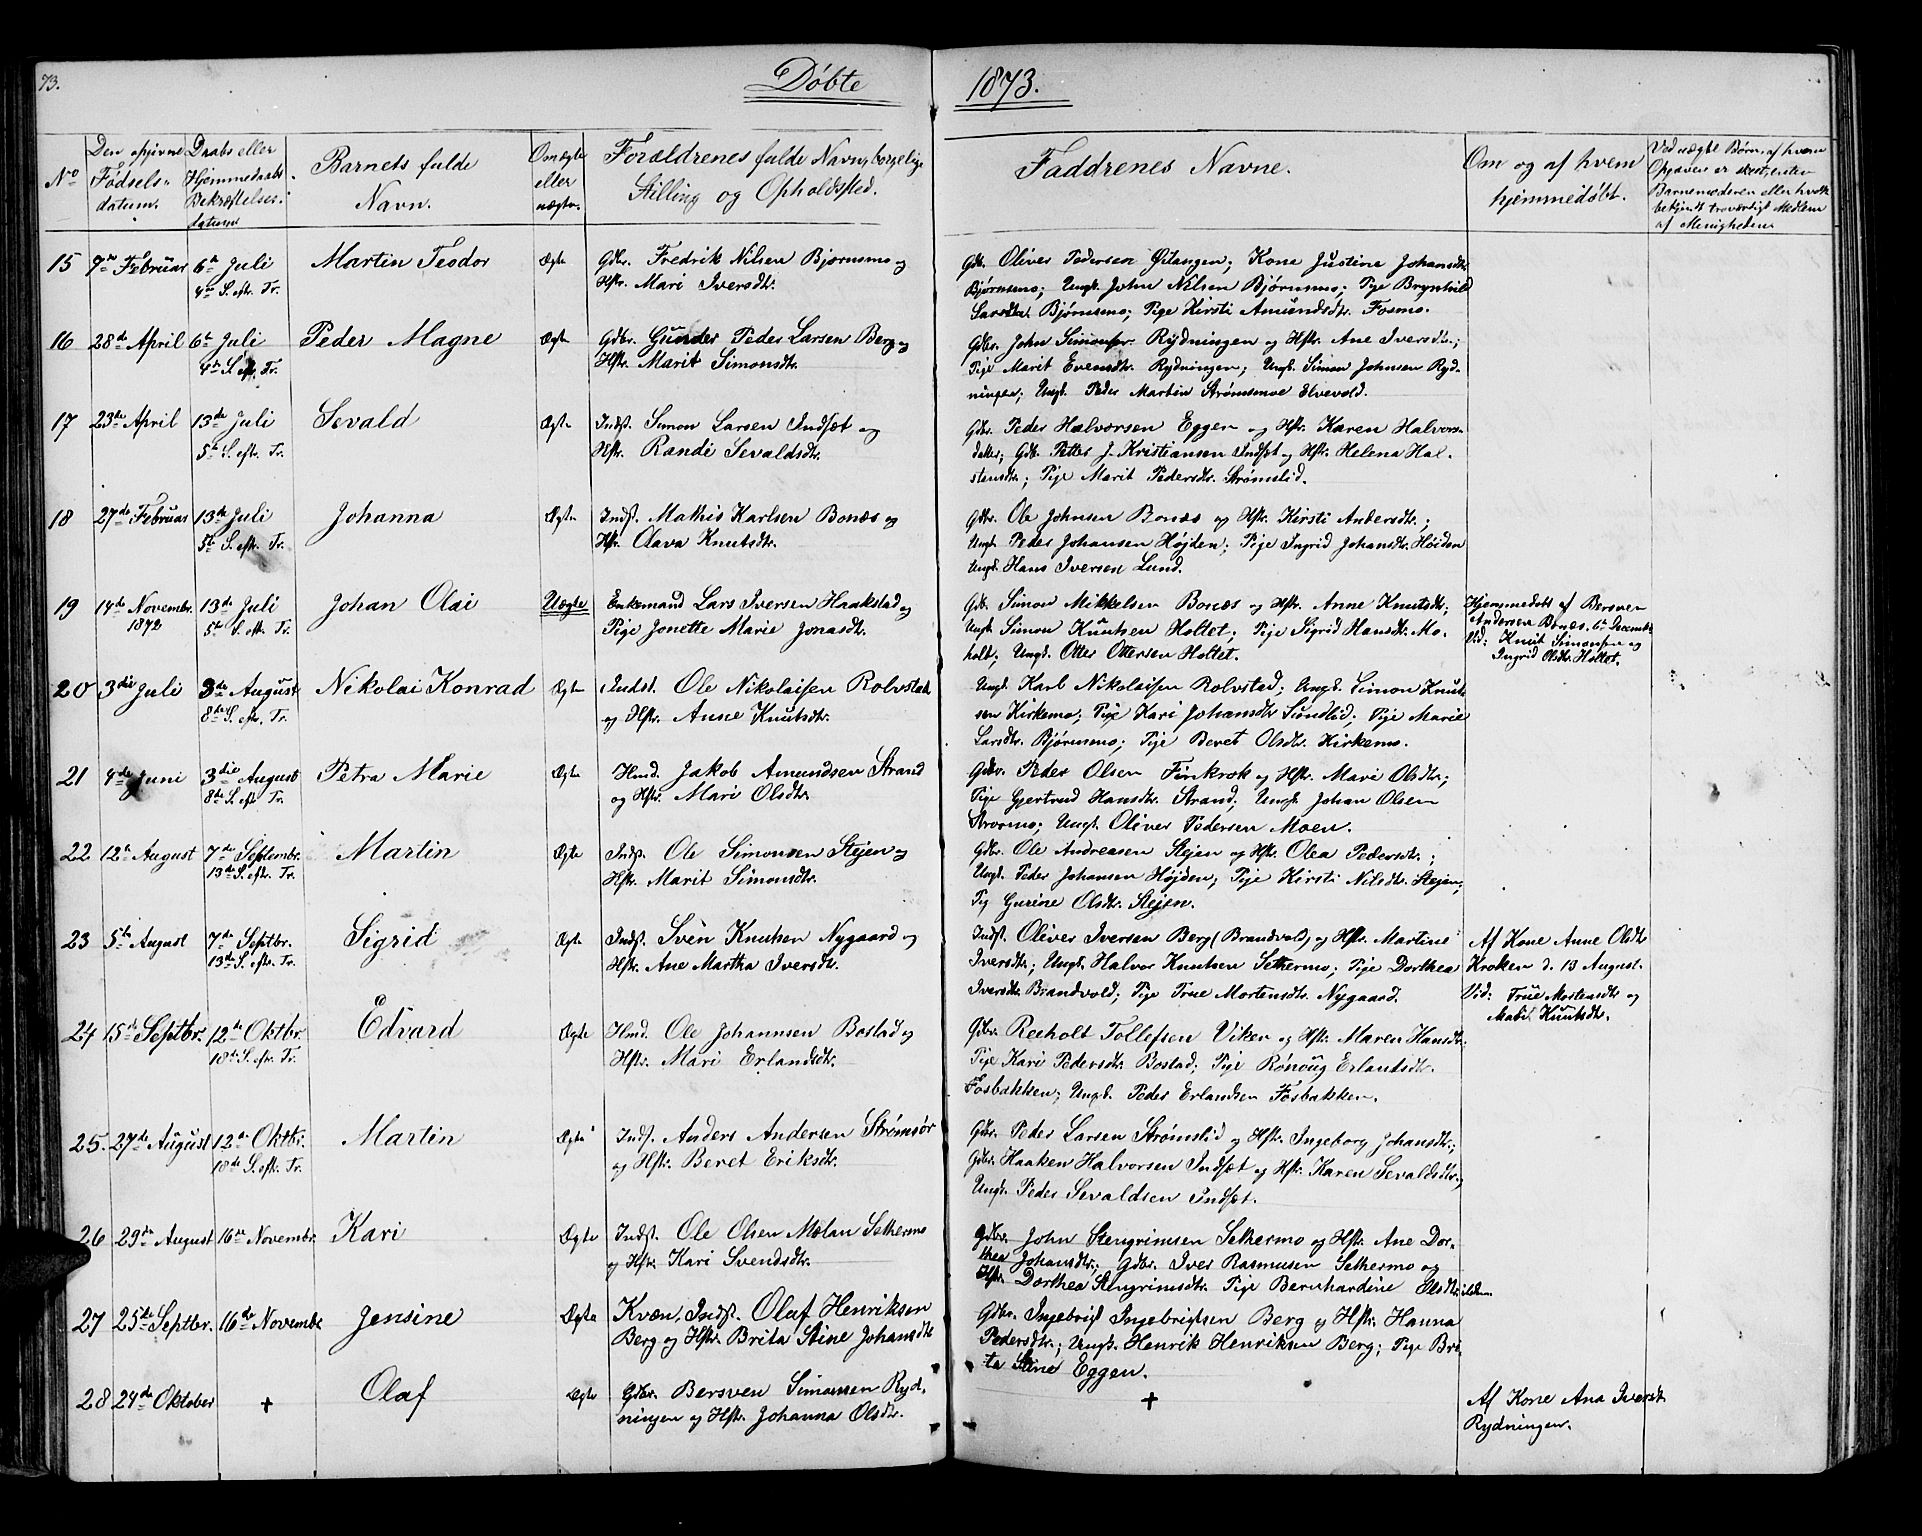 73.
Døbte 1873.
No
Den opgivne Fødsels-datum.
Daabs eller Hjemmedaabs Bekræftelses-datum
Barnets fulde Navn.
Om ægte eller uægte.
Forældrenes fulde Navn, borgelige Stilling og Opholdssted.
Faddrenes Navne.
Om og af hvem hjemmedøbt.
Ved uægte Børn, af hvem Opgaven er skeet, enten Barnemoderen eller hvilk bekjendt troværdigt Medlem af Menigheden
15 7de Februar 6te Juli Martin Teodor Ægte Gdbr. Fredrik Nilsen Bjørnsmo og
4de S. eft. Tr. Hstr. Mari Iversdtr.
Gdb. Oliver Pedersen Østangen; Kone Justina Johansdtr
Bjørnsmo; Ungk. John Nilsen Bjørnsmo; Pige Brynhild
Larsdtr. Bjørnsmo; Pige Kirsti Amundsdtr. Fosmo.
16 28de April 6te Juli Peder Magne Ægte Gdbr. Gunder Peder Larsen Berg og
4de S. eft. Tr. Hstr. Marit Simonsdtr.
Gdbr. John Simonsen Rydningen og Hstr. Ane Iversdtr.;
Pige Marit Evensdtr. Rydningen; Ungk. Simon Johnsen Ryd-
ningen; Ungk. Peder Martin Strømsmoe Elvevold.
17 23de April 13de Juli Sevald Ægte Indst. Simon Larsen Indset og
5te S. eft. Tr. Hstr. Randi Sevaldsdtr.
Gdbr. Peder Halvorsen Eggen og Hstr. Karen Halvors-
datter; Gdb. Petter J. Kristiansen Indset og Hstr. Helena Hal-
stensdtr.; Pige Marit Pedersdtr. Strømslid.
18 27de Februar 13de Juli Johanna Ægte Indst. Mathis Karlsen Bonæs og
5te S. eft. Tr. Hstr. Olava Knutsdtr.
Gdbr. Ole Johnsen Bonæs og Hstr. Kirsti Andersdtr.;
Ungk. Peder Johansen Højden; Pige Ingrid Johansdtr. Høiden
Ungk. Hans Iversen Lund.
19 14de Novembr. 13de Juli Johan Olai Uægte Enkemand Lars Iversen Haakstad og
1872 5te S. eft. Tr. Pige Jonette Marie Jonasdtr.
Gdb. Simon Mikkelsen Bonæs og Hstr. Anne Knutsdtr;
Ungk. Simon Knutsen Holtet; Pige Sigrid Hansdtr. Mo-
holt; Ungk. Otter Ottersen Holtet.
Hjemmedøbt af Bersven
Andersen Bonæs 6te Decembr
Vid: Knut Simonsen og
Ingrid Olsdtr. Holtet.
20 3die Juli 3die August Nikolai Konrad Ægte Indst. Ole Nikolaisen Rolvstad
8de S. eft. Tr. og Hstr. Anne Knutsdtr.
Ungk. Karl Nikolaisen Rolvstad; Ungk. Simon Knut-
sen Kirkemo; Pige Kari Johansdtr Sundlid; Pige Marie
Larsdtr. Bjørnsmo; Pige Beret Olsdtr. Kirkemo.
21 4de Juni 3die August Petra Marie Ægte Hmd. Jakob Amundsen Strand
8de S. eft. Tr. og Hstr. Mari Olsdtr.
Gdbr. Peder Olsen Finkrok og Hstr. Mari Olsdtr.;
Pige Gjertrud Hansdtr. Strand; Ungk. Johan Olsen
Moen; Ungk. Oliver Pedersen Moen.
22 12te August 7de Septembr. Martin Ægte Indst. Ole Simonsen Stejen og
13de S. eft. Tr. Hstr. Marit Simonsdtr.
Gdbr. Ole Andreasen Stejen og Hstr. Olea Pedersdtr.;
Ungk. Peder Johansen Højden; Pige Kirsti Nilsdtr. Stejen;
Pig Gurine Olsdtr. Stejen.
23 5te August 7de Septbr. Sigrid Ægte Indst. Sven Knutsen Nygaard og
13de S. eft. Tr. Hstr. Ane Martha Iversdtr.
Indst. Oliver Iversen Berg (Brandvold) og Hstr. Martine
Iversdtr.; Ungk. Halvor Knutsen Sethermo; Pige Dorthea
Iversdtr. Brandvold; Pige True Mortensdtr. Nygaard.
Af Kone Anne Olsdtr
Kroken d. 13 August.
Vid: True Mortensdtr og
Mali Knutsdtr.
24 15de Septbr. 12te Oktbr. Edvard Ægte Hmd. Ole Johannsen Bostad og
18de S. eft. Tr. Hstr. Mari Erlandsdtr.
Gdbr. Reeholt Tollefsen Viken og Hstr. Maren Hansdtr.
Pige Kari Pedersdtr. Bostad; Pige Rønnug Erlandsdtr.
Fosbakken; Ungk. Peder Erlandsen Fosbakken.
25. 27de August 12te Oktbr. Martin Ægte Indst. Anders Andersen Strømsør
18de S. eft. Tr. og Hstr. Beret Eriksdtr.
Gdbr. Peder Larsen Strømslid og Hstr. Ingeborg Johansdtr.;
Gdbr. Haaken Halvorsen Indset og Hstr. Karen Sevaldsdtr.;
Ungk. Peder Sevaldsen Indset.
26 29de August 16de Novembr. Kari Ægte Indst. Ole Olsen Melan Sethermo
og Hstr. Kari Svendsdtr.
Gdbr. John Stengrimsen Sethermo og Hstr. Ane Dor-
thea Johansdtr.; Gdbr. Iver Rasmusen Sethermo og
Hstr. Dorthea Stengrimsdtr. Pige Bernhardine Olsdtr
27 25de Septbr. 16de Novembr Jensine Ægte Kvæn, Indst. Olaf Henriksen
Berg og Hstr. Brita Stine Johansdtr
Gdbr. Ingebrigt Ingebrigtsen Berg og Hstr. Hanna
Pedersdtr.; Ungk. Henrik Henriksen Berg; Pige Bri-
ta Stine Eggen.
28 24de Oktober + Olaf Ægte Gdbr. Bersven Simonsen Ryd-
ningen og Hstr. Johanna Olsdtr.
+
Af Kone Ana Iversdtr.
Rydningen.